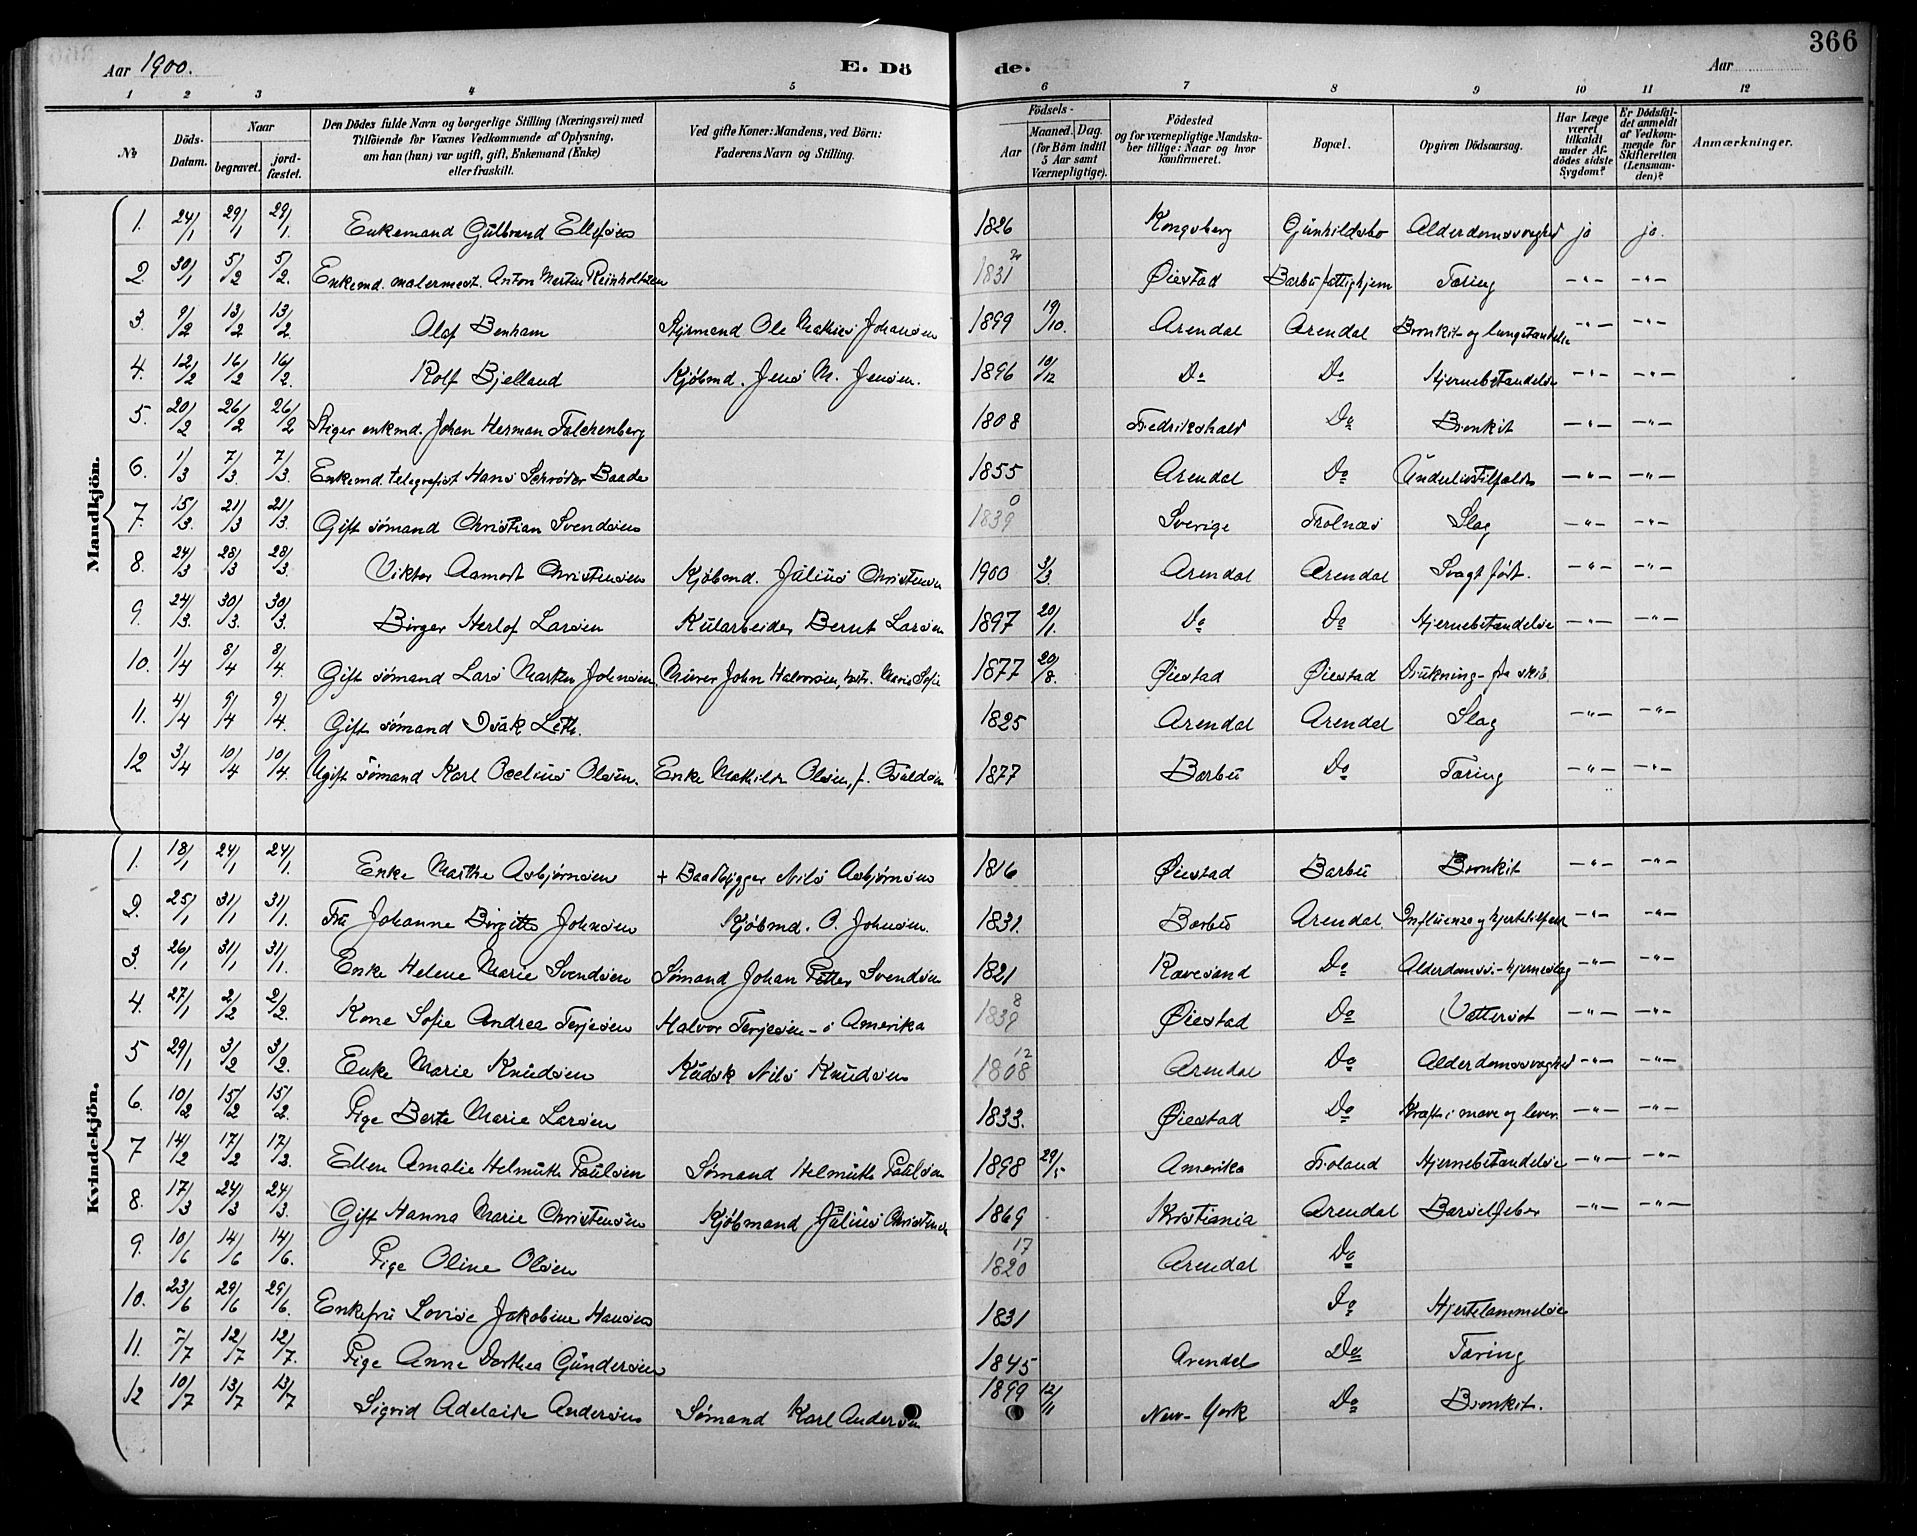 366
Aar 1900.
E. Dö de.
Aar
1 2 3 4 5 6 7 8 9 10 11 12
№
Döds-Datum.
Naar
begravet.
jord-fæstet.
Den Dödes fulde Navn og borgerlige Stilling (Næringsvei) med
Tilföiende for Voxnes Vedkommende af Oplysning,
om han (hun) var ugift, gift, Enkemand (Enke)
eller fraskilt.
Ved gifte Koner: Mandens, ved Börn:
Faderens Navn og Stilling.
Födsels-
Aar
Maaned. Dag.
(for Börn indtil
5 Aar samt
Værnepligtige).
Födested
og for værnepligtige Mandska-
ber tillige: Naar og hvor
konfirmeret.
Bopæl.
Opgiven Dödsaarsag.
Har Læge
været
tilkaldt
under Af-
dödes sidste
Sygdom?
Er Dödsfal-
det anmeldt
af Vedkom-
mende for
Skifteretten
(Lensman-
den)?
Anmærkninger.
Mandkjön.
1. 24/1 29/1 29/1. Enkemand Gulbrand Ellefsen 1826 Kongsberg Gunhildsbo Alderdomssvaghed ja ja.
2. 30/1 5/2 5/2. Enkemd. malermest. Anton Martin Reinholtsen 1831 Øiestad Barbu fattighjem Tæring —"— —"—
3. 9/2 13/2 13/2. Olaf Benham Styrmand Ole Mathias Johansen 1899 19/10. Arendal Arendal Bronkit- og lungebetændelse —"— —"—
4. 12/2 16/2 16/2. Rolf Bjelland Kjøbmd. Jens M. Jensen. 1896 10/12 Do Do Hjernebetændelse —"— —"—
5. 20/2 26/2 26/2 Stiger enkmd. Johan Herman Falchenberg 1808 Fredrikshald Do Bronkit —"— —"—
6. 1/3 7/3. 7/3. Enkemd. telegrafist Hans Schrøder Baade 1855 Arendal Do Underlivstilfælde —"— —"—
7. 15/3. 21/3 21/3. Gift sømand Christian Svendsen 1839 0 Sverige Trolnæs Slag —"— —"—
8. 24/3 28/3 28/3. Viktor Aamodt Christensen Kjøbmd. Julius Christensen 1900 3/3. Arendal Arendal Svagt født. —"— —"—
9. 24/3. 30/3. 30/3. Birger Herlof Larsen Kularbeider Bernt Larsen 1897 20/11. Do Do Hjernebetændelse —"— —"—
10. 1/4 8/4 8/4. Gift sømand Lars Martin Johnsen Murer John Halvorsen, hstr. Marie Sofie 1877 20/8. Øiestad Øiestad Drukning - fra skib
11. 4/4 9/4 9/4. Gift sømand Isak Leth. 1825 Arendal Arendal Slag —"— —"—
12 3/4 10/4 10/4. Ugift sømand Karl Ocelius Olsen. Enke Mathilde Olsen, f. Osuldsen 1877 Barbu Do Tæring —"— —"—
Kvindekjön.
1. 18/1 24/1 24/1. Enke Marthe Asbjørnsen + Baadbygger Nils Asbjørnsen 1816 Øiestad Barbu Bronkit —"— —"—
2. 25/1 31/1 31/1. Fru Johanne Birgitte Johnsen Kjøbmd. O. Johnsen. 1831. Barbu Arendal. Influenza og hjertetilfæld —"— —"—
3. 26/1 31/1 31/1. Enke Helene Marie Svendsen Sømand Johan Petter Svendsen 1821 Rævesand Do Alderdomss.- hjerneslag —"— —"—
4. 27/1 2/2 2/2. Kone Sofie Andrea Terjesen Halvor Terjesen - i Amerika 1839 8 Øiestad Do Vattersot —"— —"—
5 29/1 3/2 3/2. Enke Marie Knudsen Kudsk Nils Knudsen 1808 12 Arendal Do Alderdomssvaghed —"— —"—
6. 10/2 15/2 15/2. Pige Berte Marie Larsen 1833. Øiestad Do Kræft i mave og lever. —"— —"—
7 14/2 17/2 17/2. Ellen Amalie Helmuth Paulsen Sømand Helmuth Paulsen 1898 29/5 Amerika Froland Hjernebetændelse —"— —"—
8. 17/3 24/3 24/3. Gift Hanna Marie Christensen Kjøbmand Julius Christensen 1869 Kristiania Arendal Barselfeber —"— —"—
9. 10/6 14/6 14/6. Pige Oline Olsen 1820 17 Arendal Do
10. 23/6 29/6 29/6. Enkefru Lovise Jakobine Hansen 1831 Do Hjertelammelse
11. 7/7 12/7 12/7. Pige Anne Dorthea Gundersen 1845 Arendal Do Tæring
12 10/7 13/7 13/7 Sigrid Adelaide Andersen Sømand Karl Andersen 1899 12/11 New-York Do Bronkit.